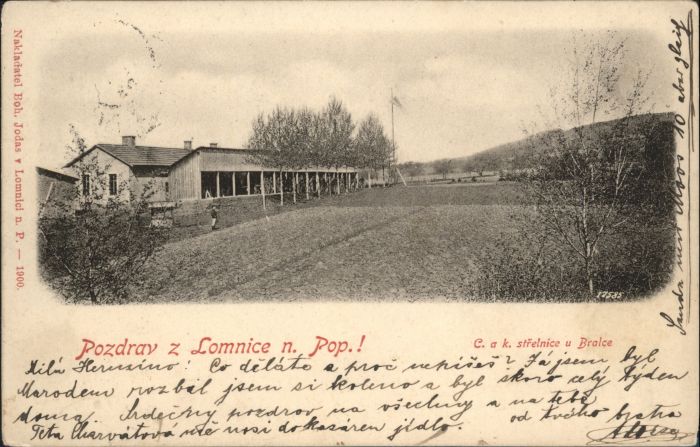 Nakladatel Boh. Jodas v Lomnici n. P. — 1900.
Pozdrav z Lomnice n. Pop.!
C. a k. střelnice u Bralce
17535
Milá Hermíno! Co děláte a proč nepíšeš? Já jsem byl
Marodem rozbál jsem si koleno a byl skoro celý týden
doma. Srdečný pozdrov na všechny a na tebe
od tvého bratra
Teta Charvátová mě nosí do kasáren jídlo.
10 aber gleich